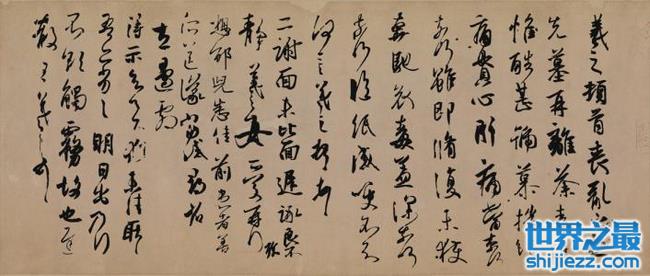 羲之頓首喪亂之極
先墓再離荼毒追
惟酷甚號慕摧絕
痛貫心肝痛當奈何
奈何雖即脩復未獲
奔馳哀毒益深奈何
奈何臨紙感哽不知
何言羲之頓首頓首
二謝面未比面遲詠良不
靜羲之女愛再拜
想邵兒悉佳前患者善
所送議當試尋省
左邊劇
得示知足下猶未佳耿耿
吾亦劣劣明日出乃行
不欲觸霧故也遲
散王羲之頓首
世界之最
shijiezz.com